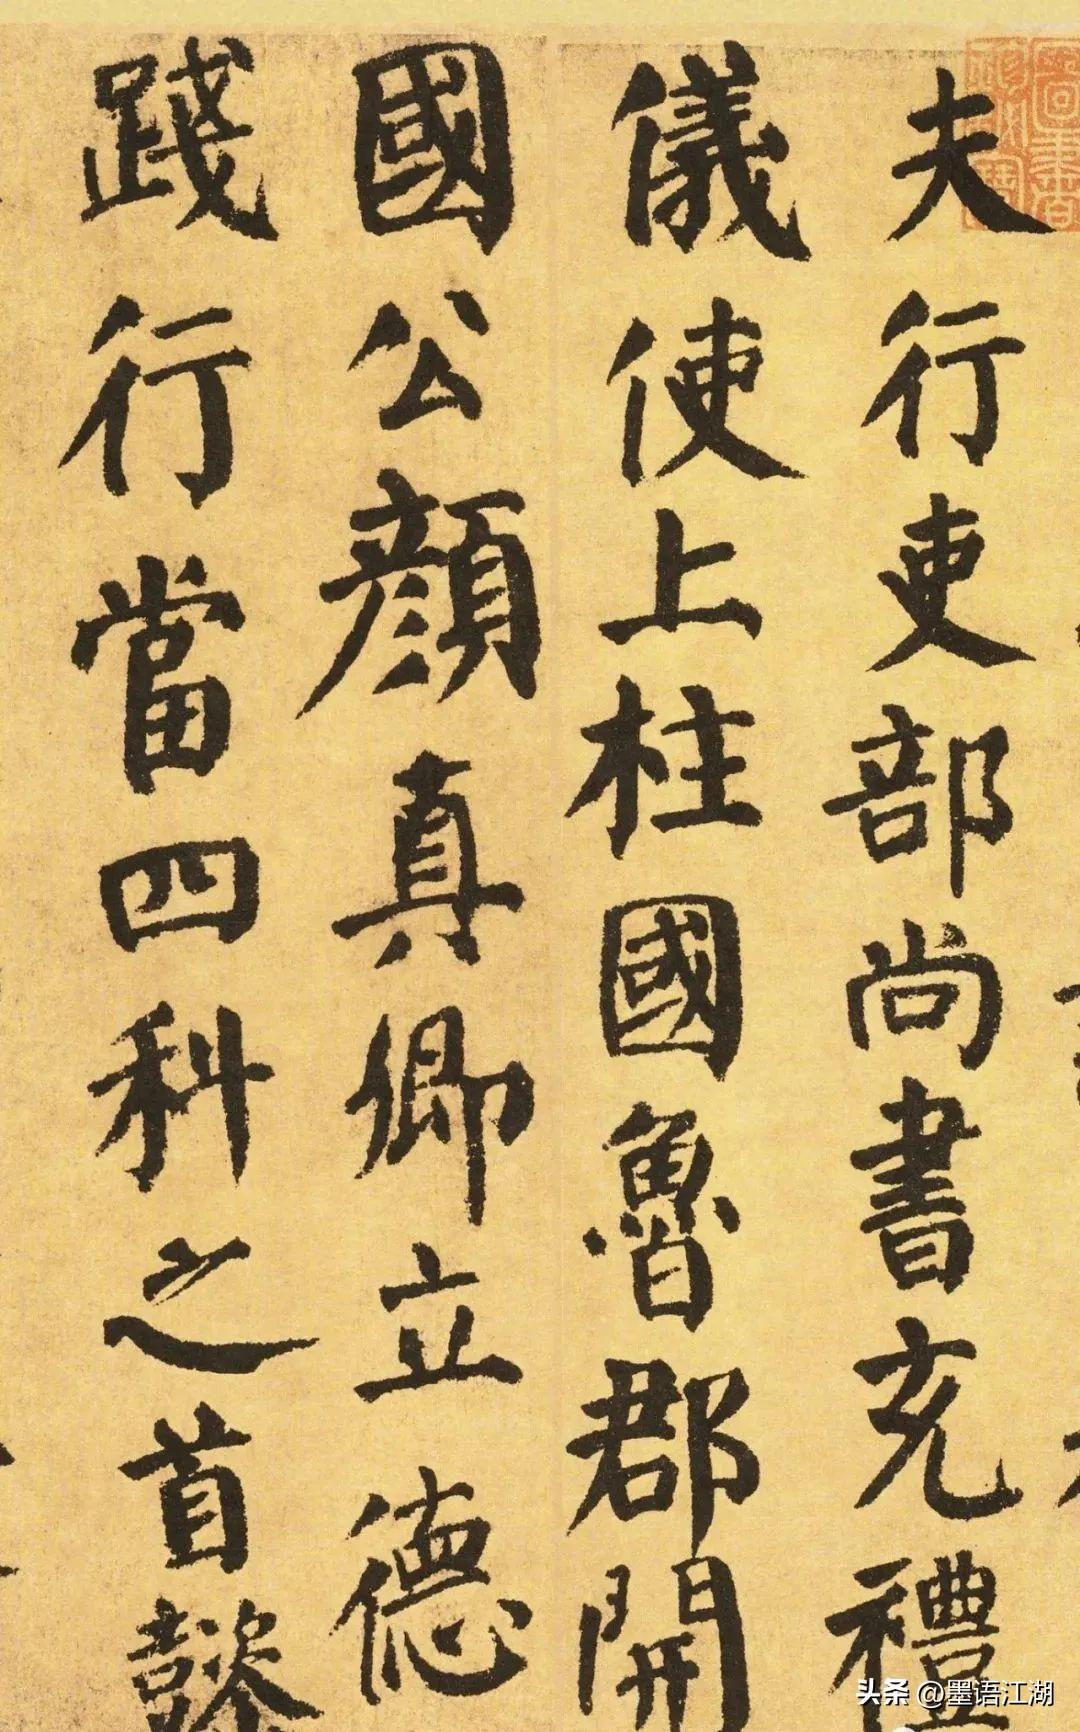 夫行吏部尚書充禮
儀使上柱國魯郡開
國公顏真卿立德
踐行當四科之首懿
头条 @墨语江湖